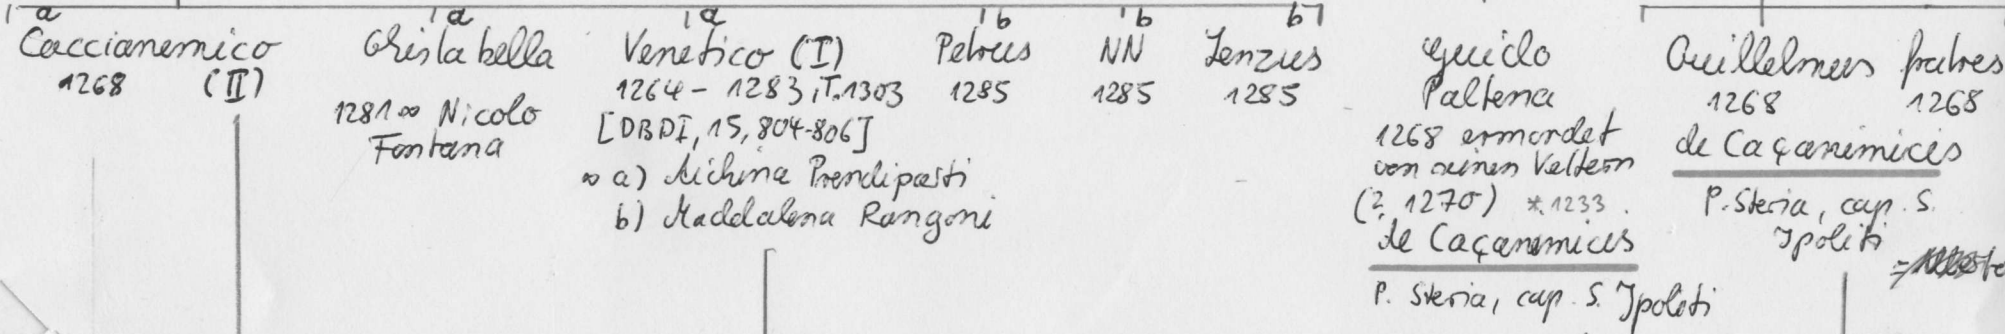 a
Caccianemico
1268 (II)
a
Ghislabella
1281 ∞ Nicolo
Fontana
a
Venetico (I)
1264 - 1283, T. 1303
[DBDI, 15, 804-806]
∞ a) Aichina Prendiparti
b) Maddalena Rangoni
b
Petrus
1285
b
NN
1285
b
Jenzus
1285
Guido
Paltena
1268 ermordet
von seinen Vettern
(? 1270) *.1233.
de Caçanimicis
P. Steria, cap. S. Ypoliti
Guillelmus fratres
1268 1268
de Caçanimicis
P. Steria, cap. S.
Ypoliti